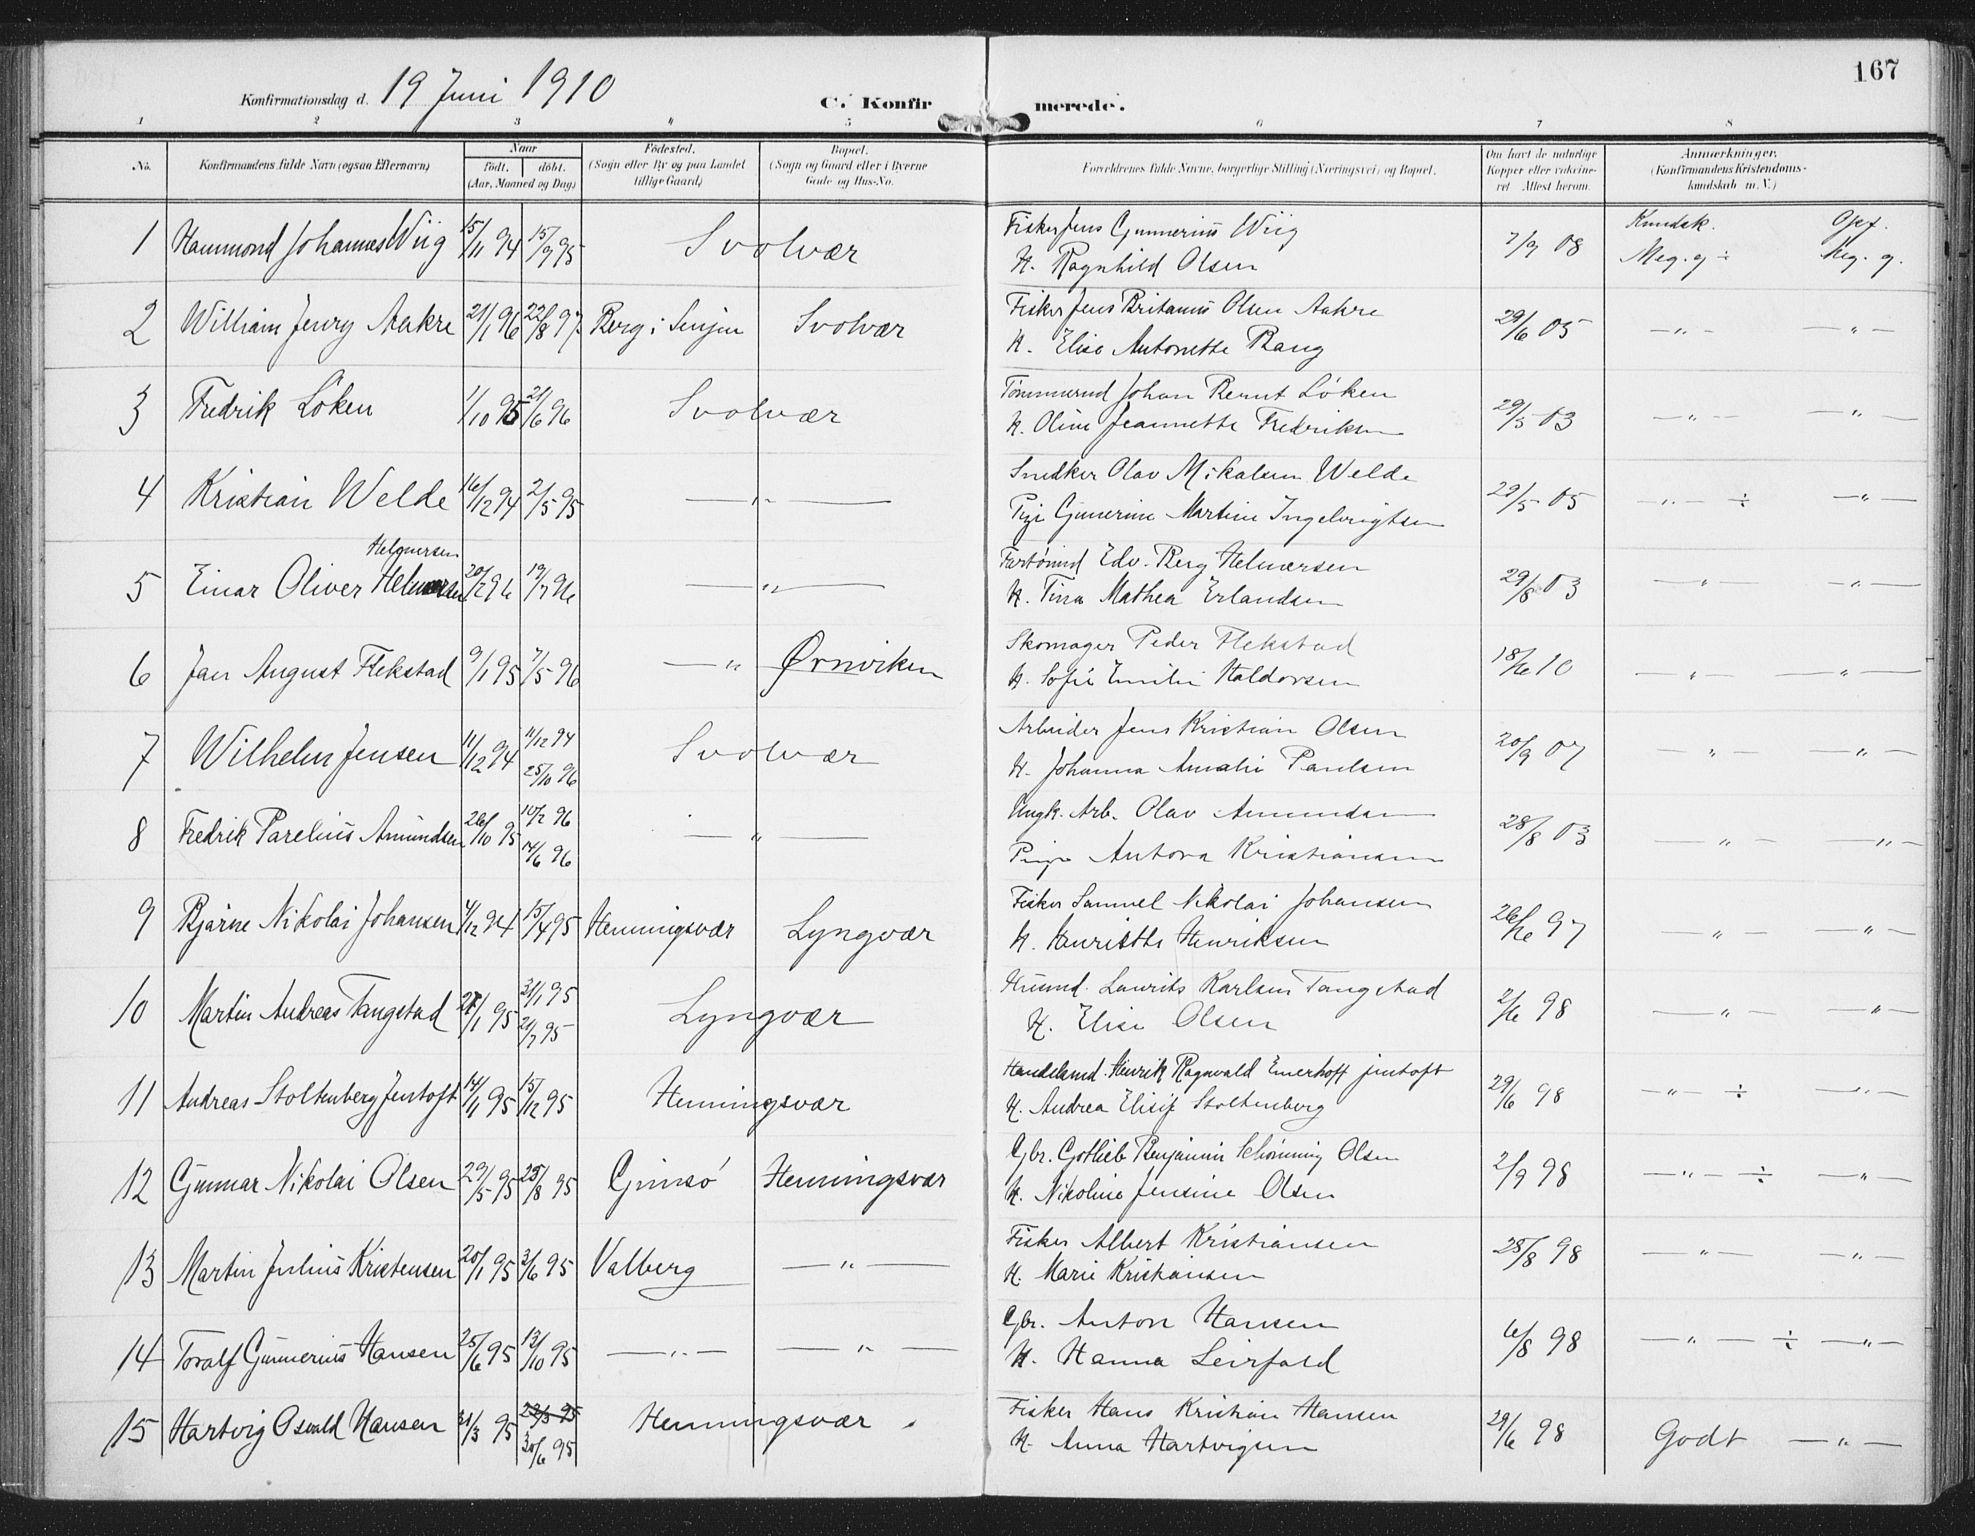 167
Konfirmationsdag d. 19 Juni 1910
C. Konfirmerede.
1 2 3 4 5 6 7 8
No. Konfirmandens fulde Navn (ogsaa Efternavn) Naar født. døbt. (Aar, Maaned og Dag) Fødested. (Sogn eller By og paa Landet tillige Gaard) Bopæl. (Sogn og Gaard eller i Byerne Gade og Hus-No. Forældrenes fulde Navne, borgerlige Stilling (Næringsvei) og Bopæl. Om havt de naturlige Kopper eller vakcineret. Attest herom. Anmærkninger. (Konfirmandens Kristendomskundskab m. V.)
1 Hammond Johannes Wiig 15/11 94 15/9 95 Svolvær Fisker Jens Gunnerius Wiig 7/9 08 Kundsk. Opf.
H. Ragnhild Olsen Meg. g ÷ Meg. g.
2 William Jenry Aakre 21/1 96 22/8 97 Berg i Senjen Svolvær Fisker Jens Britanus Olsen Aakre 29/6 05 — " — — " —
H. Elise Antonette Bang
3 Fredrik Løken 1/10 95 21/6 96 Svolvær Tømmermd Johan Bernt Løken 29/5 03 — " — — " —
H. Oline Jeannette Fredriksen
4 Kristian Welde 16/12 94 2/5 95 — " — Snedker Olav Mikalsen Welde 29/5 05 — " — ÷ — " —
Pige Gunerine Martine Ingebrigtsen
Helgnersen
5 Einar Oliver Helmersen 20/2 96 19/7 96 — " — Edv. Berg Helmersen 29/8 03 — " — — " —
H. Tina Mathea Erlandsen
6 Jan August Flekstad 9/1 95 7/5 96 — " — Ørnviken Skomager Peder Flekstad 18/6 10 — " — — " —
H. Sofie Emilie Haldorsen
7 Wilhelm Jensen 11/12 94 11/12 94 Svolvær Arbeider Jens Kristian Olsen 20/9 07 — " — — " —
25/10 96 H. Johanna Amalie Paulsen
8 Fredrik Parelius Amundsen 26/10 95 10/2 96 — " — Ungk. Arb. Olav Amundsen 28/8 03 — " — — " —
14/6 96 Pige Antona Kristiansen
9 Bjarne Nikolai Johansen 4/12 94 15/4 95 Henningsvær Lyngvær Fisker Samuel Nikolai Johansen 26/6 97 — " — — " —
H. Henriette Henriksen
10 Martin Andreas Tangstad 27/1 95 31/1 95 Lyngvær Husmd. Laurits Karlsen Tangstad 2/6 98 — " — — " —
21/7 95 H. Elise Olsen
11 Andreas Stoltenberg Jentoft 14/11 95 15/12 95 Henningsvær Handelsmd. Henrik Ragnvald Emerhoff Jentoft 29/6 98 — " — ÷ — " —
H. Andrea Elisif Stoltenberg
12 Gunnar Nikolai Olsen 29/5 95 25/8 95 Gimsø Henningsvær Gbr. Gotlieb Benjamin Schønning Olsen 2/9 98 — " — ÷ — " —
H. Nikoline Jensine Olsen
13 Martin Julius Kristensen 20/1 95 3/6 95 Valberg — " — Fisker Albert Kristiansen 25/8 98 — " — — " —
H. Marie Kristiansen
14 Toralf Gunnerius Hansen 25/6 95 13/10 95 — " — — " — Gbr. Anton Hansen 6/8 98 — " — ÷ — " —
H. Hanna Leirfald
15 Hartvig Osvald Hansen 31/3 95 23/5 95 Henningsvær Fisker Hans Kristian Hansen 29/6 98 Godt — " —
30/6 95 H. Anna Hartvigsen